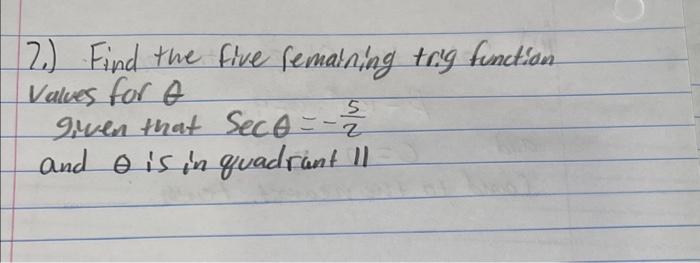 7.) Find the five remaining trig function
Values for θ
given that Sec θ = - 5/2
and θ is in quadrant II